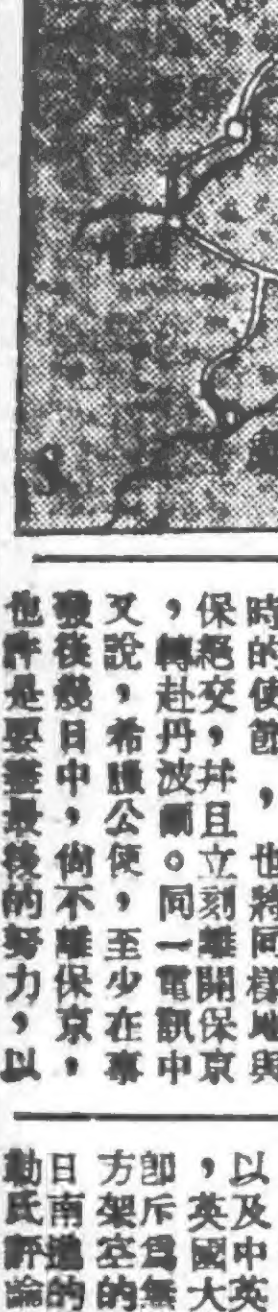 時的使節，也將同樣地與
保絕交，并且立刻離開保京
，轉赴丹波爾。同一電訊中
又說，希臘公使，至少在事
發後幾日中，尚不離保京，
也許是要盡最後的努力，以
以及中英
，英國大
卽斥爲無
方架空的
日南進的
勸氏評論